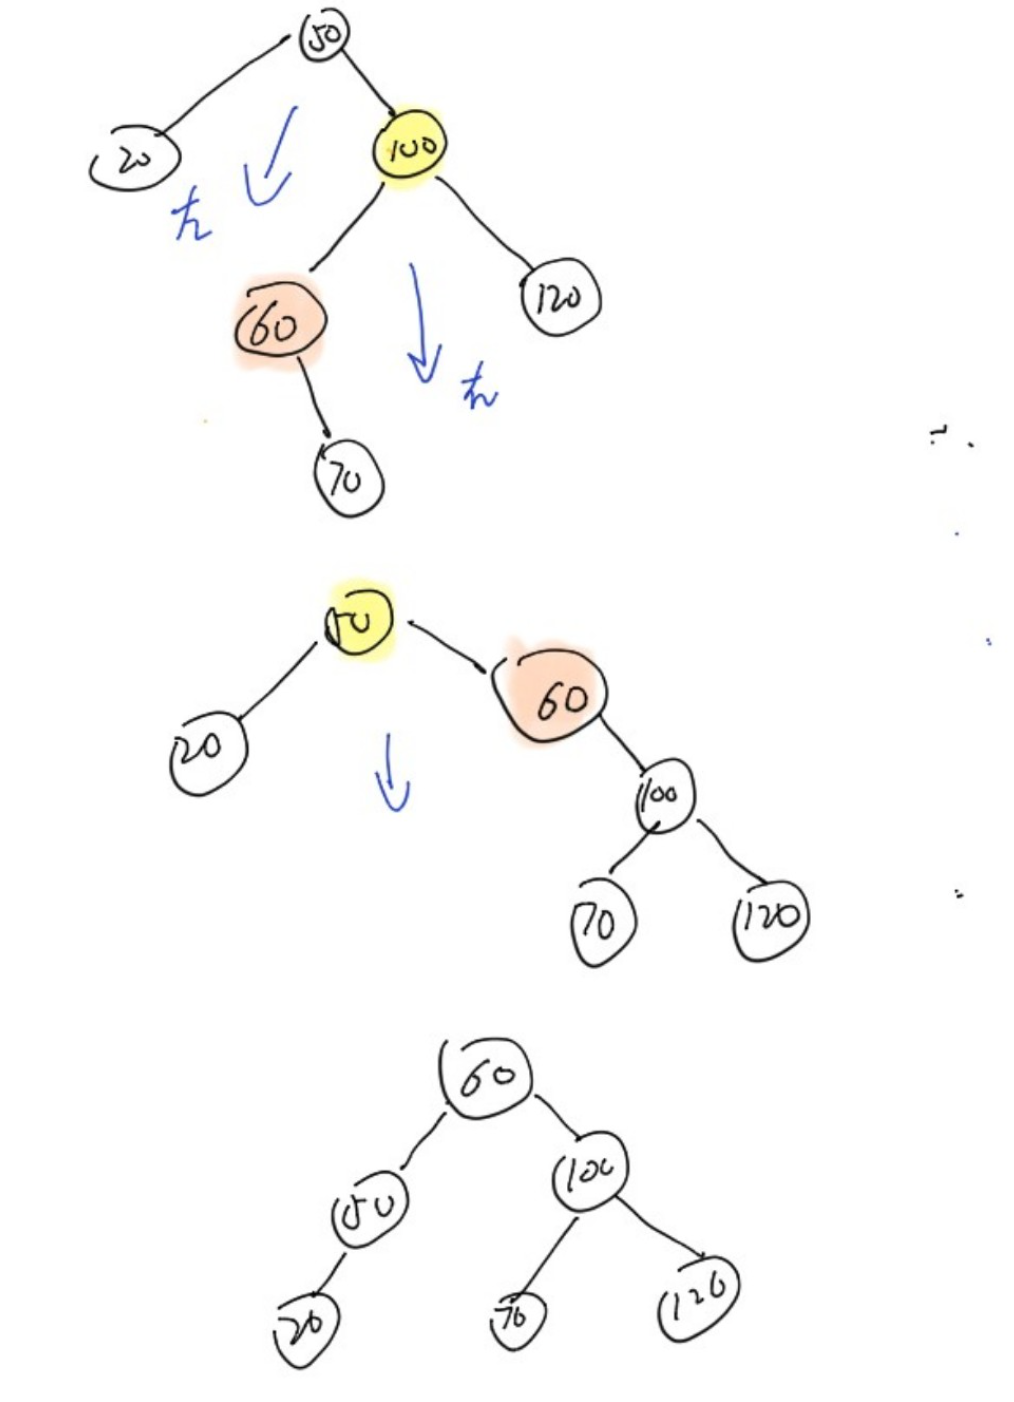 50
20
100
60
120
70
50
60
20
100
70
120
60
100
50
20
70
120